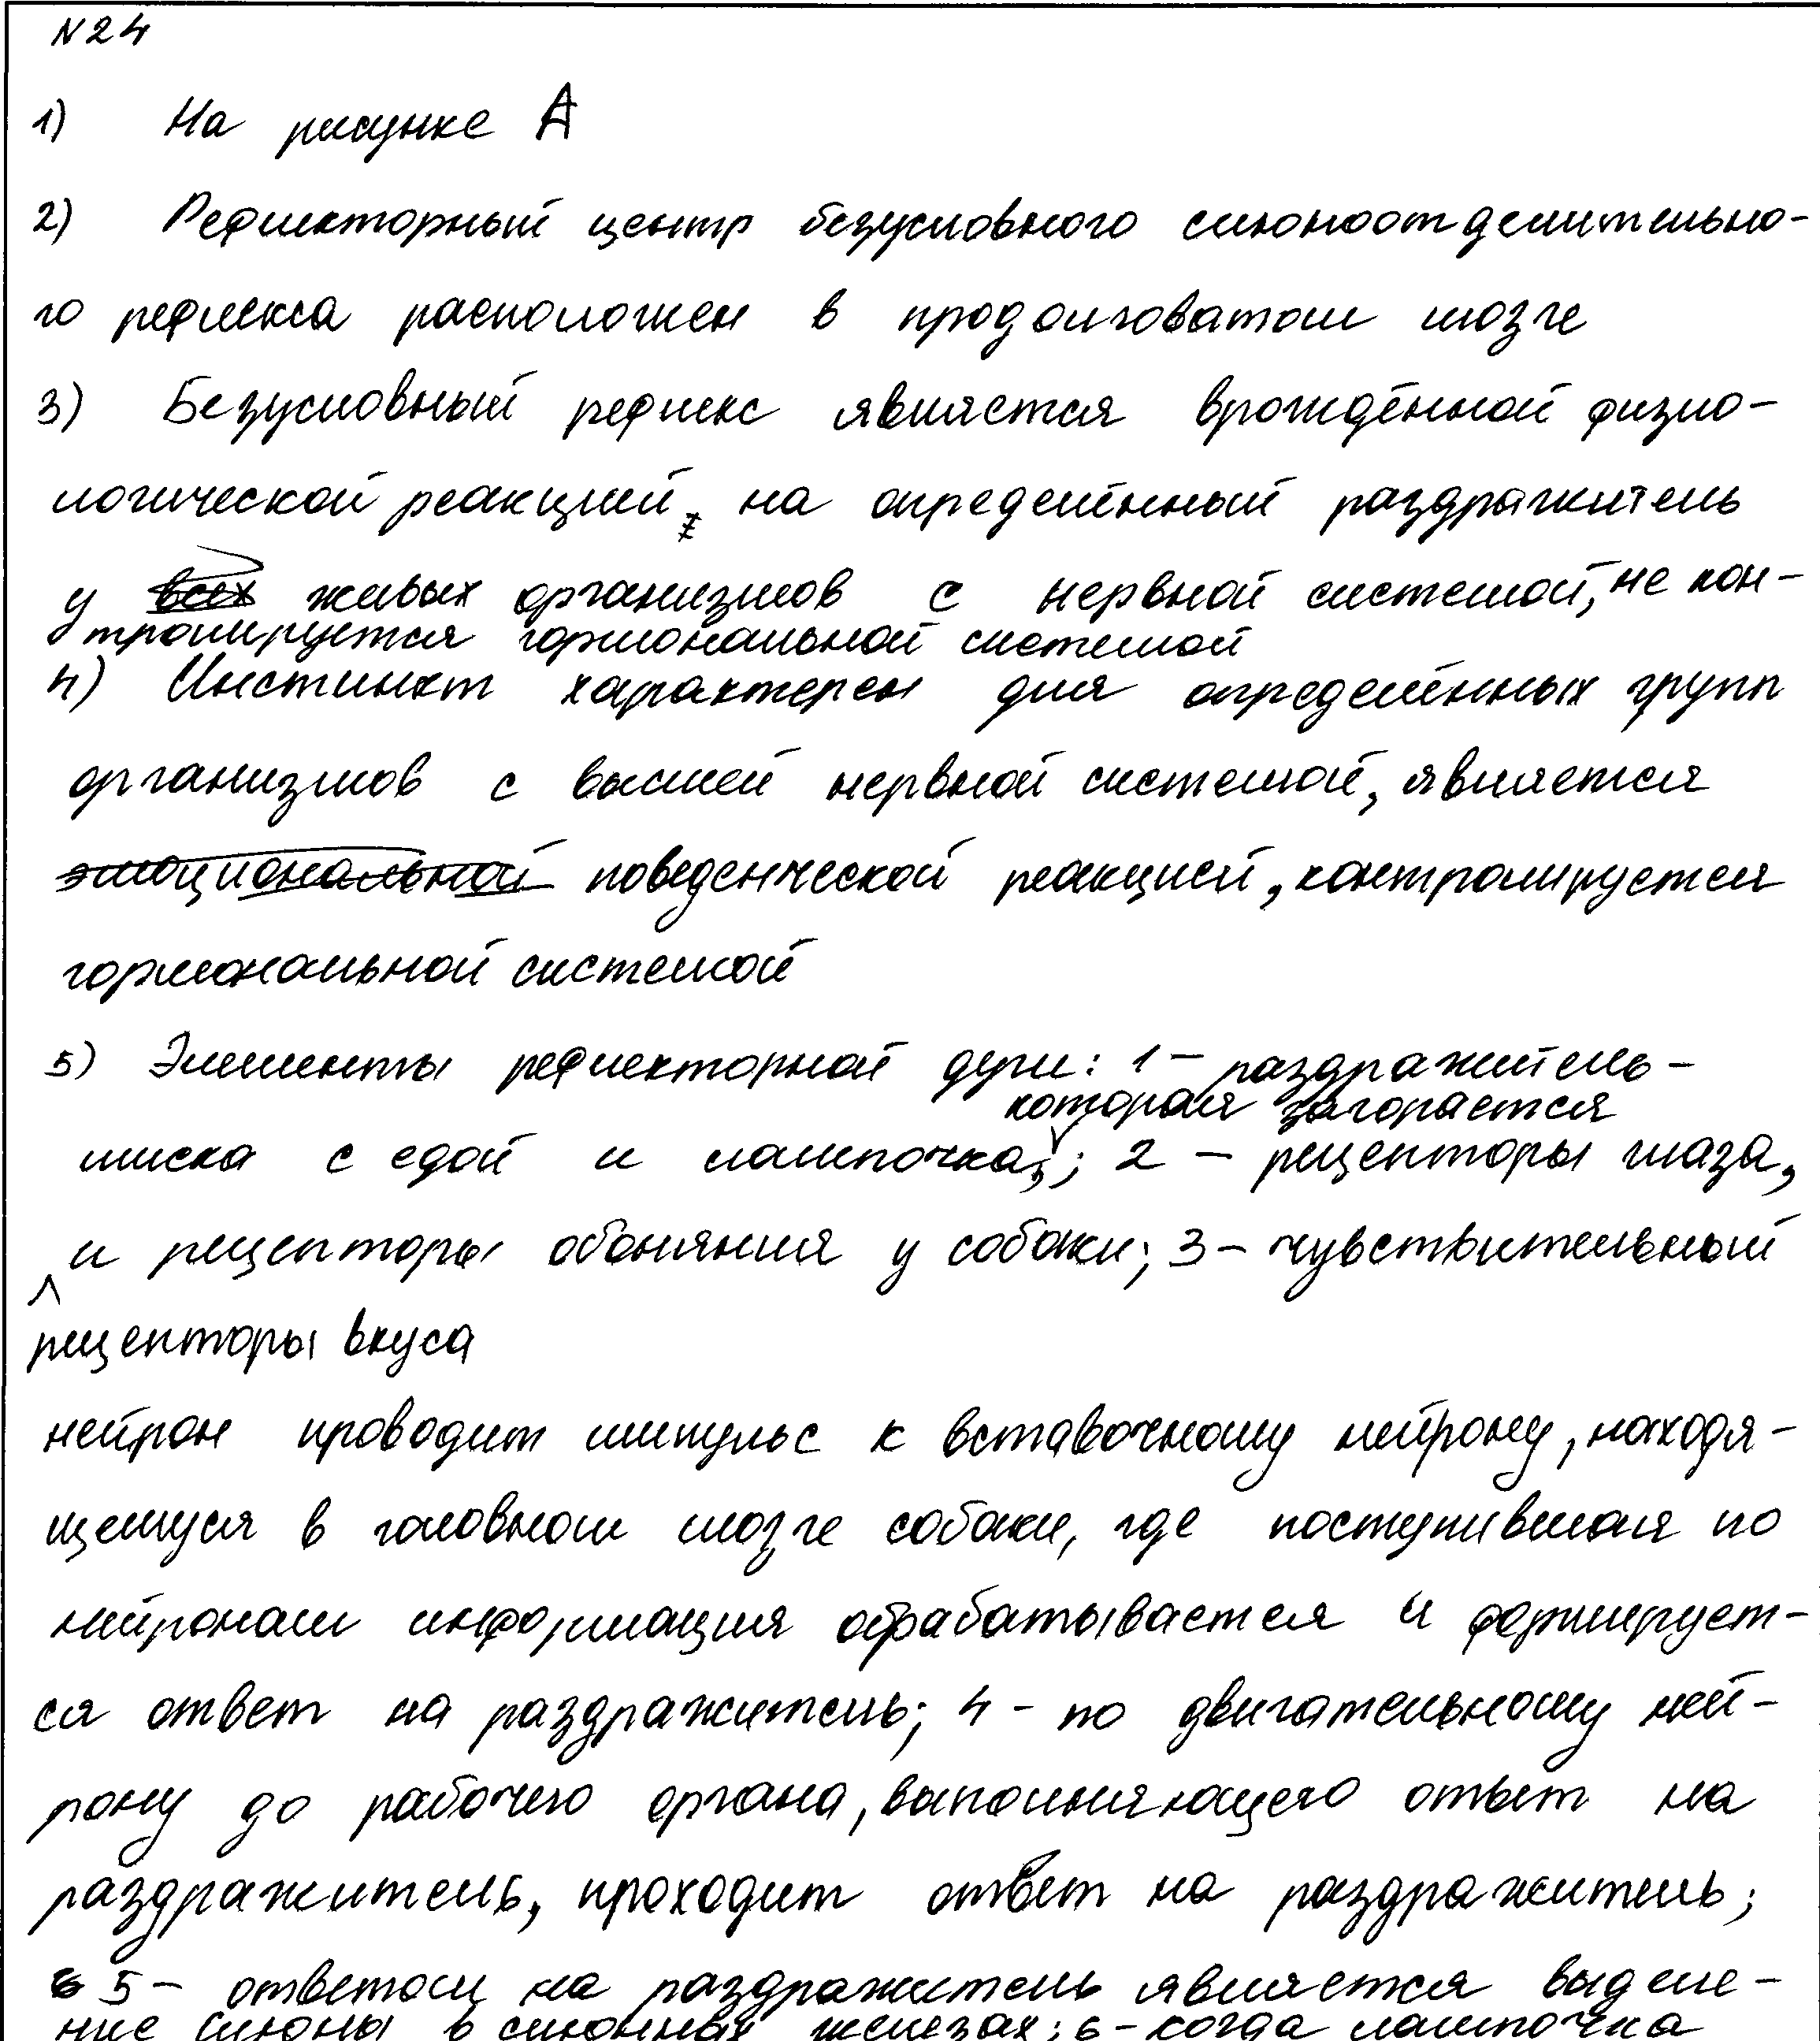 N24
1) На рисунке А
2) Рефлекторный центр безусловного слюноотделительно-
го рефлекса расположен в продолговатом мозге
3) Безусловный рефлекс является врождённой физио-
логической реакцией, на определённый раздражитель
у всех живых организмов с нервной системой, не кон-
тролируется гормональной системой
4) Инстинкт характерен для определённых групп
организмов с высшей нервной системой, является
эмоциональной поведенческой реакцией, контролируется
гормональной системой
5) Элементы рефлекторной дуги: 1 - раздражитель -
которая загорается
миска с едой и лампочка,; 2 - рецепторы глаза,
и рецепторы обоняния у собаки; 3 - чувствительный
рецепторы вкуса
нейрон проводит импульс к вставочному нейрону, находя-
щемуся в головном мозге собаки, где поступившая по
нейронам информация обрабатывается и формирует-
ся ответ на раздражитель; 4 - по двигательному ней-
рону до рабочего органа, выполняющего ответ на
раздражитель, проходит ответ на раздражитель;
5 - ответом на раздражитель является выделе-
ние слюны в слюнных железах; 6 - когда лампочка